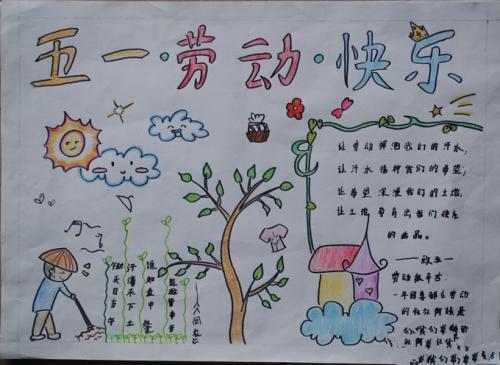 五一·劳动·快乐
让劳动挥洒我们的汗水，
让汗水播种我们的希望；
让希望深浸我们的土壤，
让土壤孕育出我们快乐
的
锄禾日当午
汗滴禾下土
谁知盘中餐
粒粒皆辛苦
劳动最辛苦。
一年四季都在劳动
的叔叔阿姨是